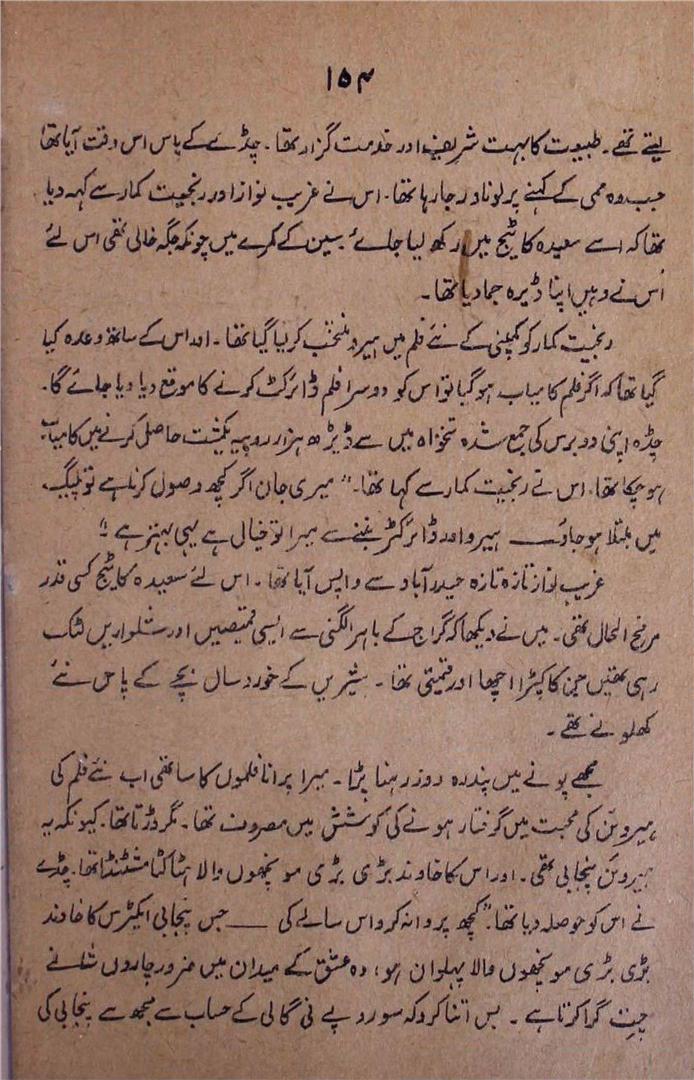 ۱۵۴
لیتے تھے۔ طبیعت کا بہت شریف اور خدمت گزار تھا۔ چڈے کے پاس اس وقت آیا تھا
جب وہ ممی کے کہنے پر لوناولہ جا رہا تھا۔ اس نے غریب نواز اور رنجیت کمار سے کہہ دیا
تھا کہ اسے سعیدہ کاٹیج میں رکھ لیا جائے۔ سین کے کمرے میں چونکہ جگہ خالی تھی اس لئے
اُس نے وہیں اپنا ڈیرہ جما دیا تھا۔
رنجیت کمار کو کمپنی کے نئے فلم میں ہیرو منتخب کر لیا گیا تھا۔ اور اس کے ساتھ وعدہ کیا
گیا تھا کہ اگر فلم کامیاب ہو گیا تو اس کو دوسرا فلم ڈائرکٹ کرنے کا موقع دیا جائے گا۔
چڈہ اپنی دو برس کی جمع شدہ تنخواہ میں سے ڈیڑھ ہزار روپیہ یکمشت حاصل کرنے میں کامیاب
ہو چکا تھا۔ اس نے رنجیت کمار سے کہا تھا۔" میری جان اگر کچھ وصول کرنا ہے تو پلیگ
میں مبتلا ہو جاؤ —— ہیرو اور ڈائرکٹر بننے سے میرا تو خیال ہے یہی بہتر ہے "
غریب نواز تازہ تازہ حیدر آباد سے واپس آیا تھا۔ اس لئے سعیدہ کاٹیج کسی قدر
مرفح الحال تھی۔ میں نے دیکھا کہ گراج کے باہر الگنی سے ایسی قمیصیں اور شلواریں لٹک
رہی تھیں جن کا کپڑا اچھا اور قیمتی تھا۔ شیریں کے خورد سال بچے کے پاس نئے
کھلونے تھے۔
مجھے پونے میں پندرہ روز رہنا پڑا۔ میرا پرانا فلموں کا ساتھی اب نئے فلم کی
ہیروئن کی محبت میں گرفتار ہونے کی کوشش میں مصروف تھا۔ مگر ڈرتا تھا۔ کیونکہ یہ
ہیروئن پنجابی تھی۔ اور اس کا خاوند بڑی بڑی مونچھوں والا ہٹا کٹا مشٹنڈا تھا۔ چڈے
نے اس کو حوصلہ دیا تھا۔" کچھ پروا نہ کرو اس سالے کی —— جس پنجابی ایکٹرس کا خاوند
بڑی بڑی مونچھوں والا پہلوان ہو، وہ عشق کے میدان میں ضرور چاروں شانے
چت گرا کرتا ہے۔ بس اتنا کرو کہ سو روپے فی گالی کے حساب سے مجھ سے پنجابی کی